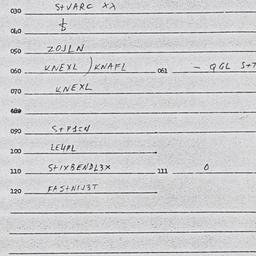 030 S+VARC XX
040 b
050 ZOJLN
060 KNEXL ) KNAFL 061 - QGL S+T
070 KNEXL
080
090 S+P1CN
100 LE4PL
110 S+1XBENDL3X 111 0
120 FAS+N1J3T